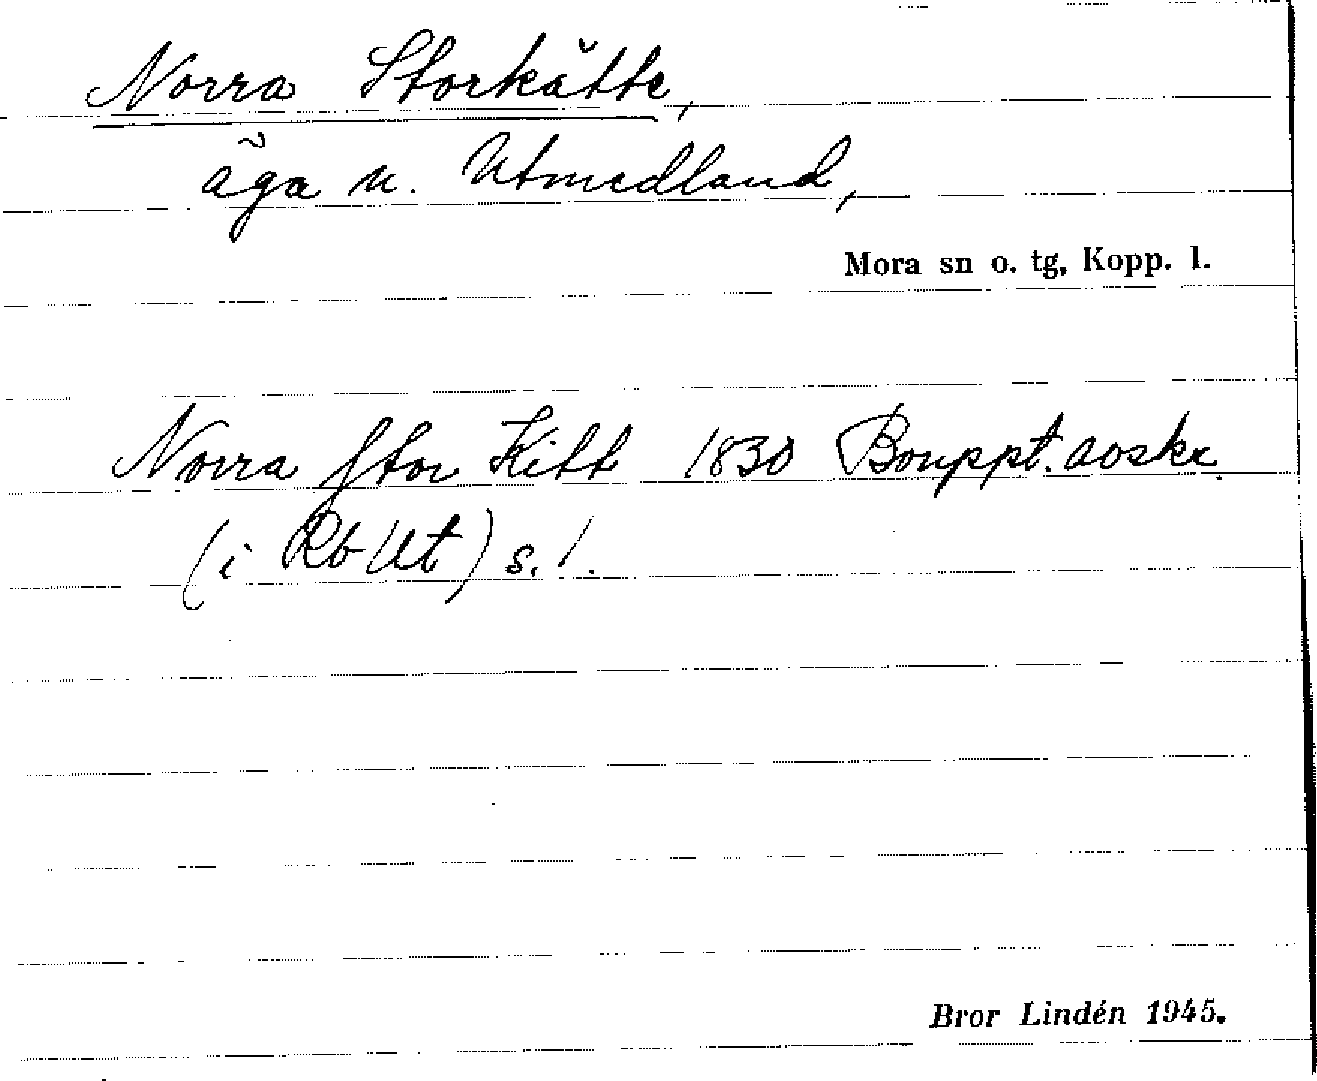 Norra Storkätte,
äga u. Utmedland,
Mora sn o. tg, Kopp. l.
Norra stor Kitt 1830 Bouppt. avskr.
(i Rb Ut) s. 1.
Bror Lindén 1945.